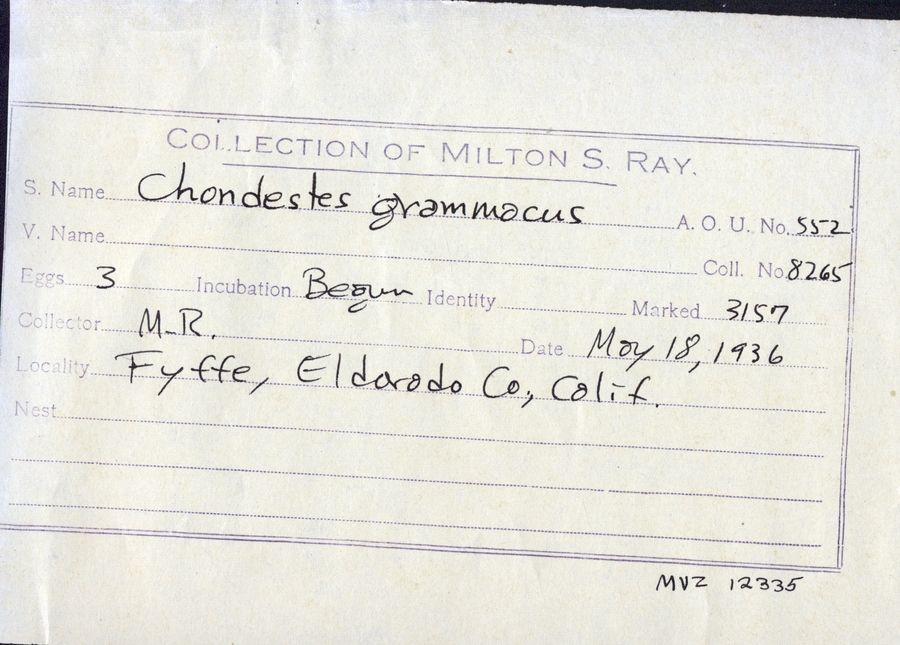 COLLECTION OF MILTON S. RAY.
S. Name Chondestes grammacus A. O. U. No. 552
V. Name Coll. No 8265
Eggs 3 Incubation Begun Identity Marked 3157
Collector M.R. Date May 18, 1936
Locality Fyffe, Eldorado Co, Calif.
Nest
MVZ 12335